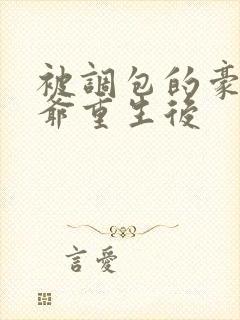 被調包的豪
爺重生後
言愛